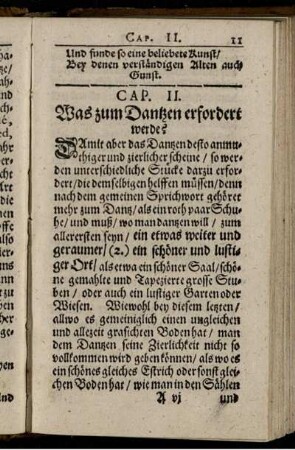 CAP. II. 11
Und funde so eine beliebete Kunst/
Bey denen verständigen Alten auch
Gunst.
CAP. II.
Was zum Dantzen erfordert
werde?
DAmit aber das Dantzen desto anmu-
thiger und zierlicher scheine / so wer-
den unterschiedliche Stücke darzu erfor-
dert / die demselbigen helffen müssen / denn
nach dem gemeinen Sprichwort gehöret
mehr zum Dantz / als ein roth paar Schu-
he / und muß / wo man dantzen will / zum
allerersten seyn / ein etwas weiter und
geraumer / (2.) ein schöner und lusti-
ger Ort / als etwa ein schöner Saal / schö-
ne gemahlte und Tapezierte grosse Stu-
ben / oder auch ein lustiger Garten oder
Wiesen. Wiewohl bey diesem letzten /
allwo es gemeiniglich einen ungleichen
und allezeit grasichten Boden hat / man
dem Dantzen seine Zierlichkeit nicht so
vollkommen wird geben können / als wo es
ein schönes gleiches Estrich oder sonst glei-
chen Boden hat / wie man in den Sählen
A vj und